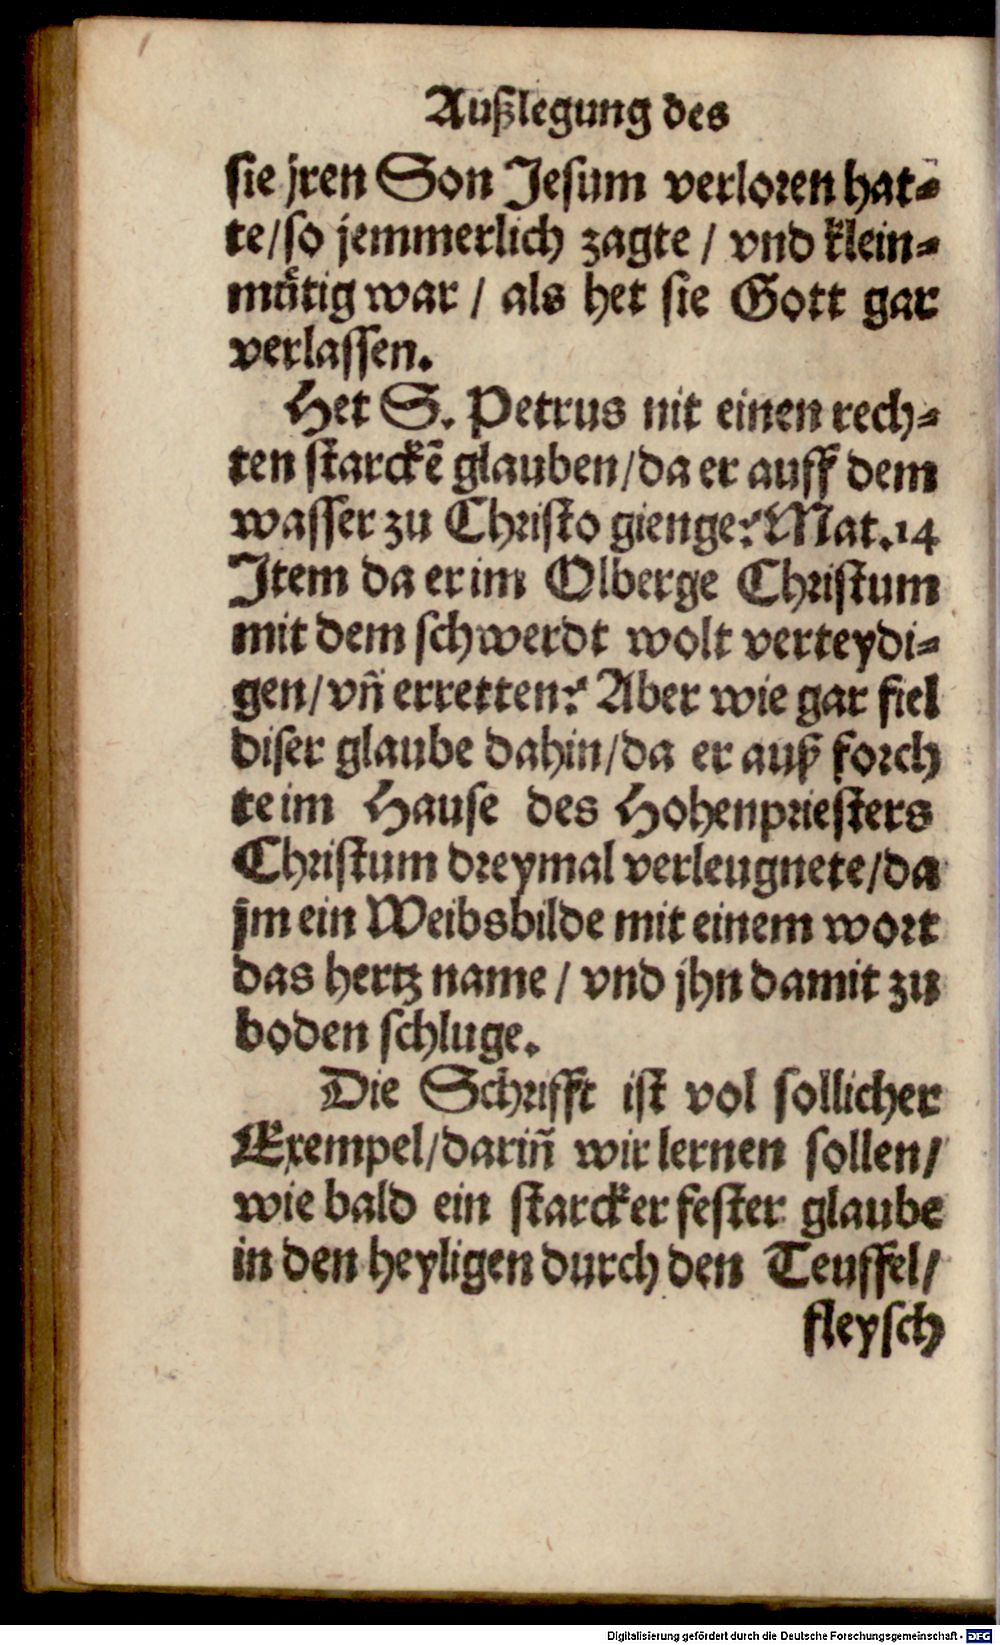 Außlegung des
sie jren Son Jesum verloren hat⸗
te/so jemmerlich zagte / vnd klein⸗
muͤtig war / als het sie Gott gar
verlassen.
Het S. Petrus nit einen rech⸗
ten starckẽ glauben/da er auff dem
wasser zu Christo gienge? Mat.14
Item da er im Olberge Christum
mit dem schwerdt wolt verteydi⸗
gen/vñ erretten? Aber wie gar fiel
diser glaube dahin/da er auß forch
te im Hause des Hohenpriesters
Christum dreymal verleugnete/da
jm ein Weibsbilde mit einem wort
das hertz name / vnd jhn damit zu
boden schluge.
Die Schrifft ist vol sollicher
Exempel/dariñ wir lernen sollen/
wie bald ein starcker fester glaube
in den heyligen durch den Teuffel/
fleysch
Digitalisierung gefördert durch die Deutsche Forschungsgemeinschaft - DFG